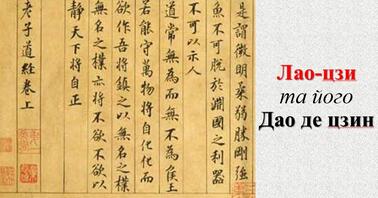 是謂微明柔弱勝剛強
魚不可脫於淵國之利器
不可以示人
道常無為而無不為侯王
若能守萬物將自化化而
欲作吾將鎮之以無名之樸
無名之樸亦將不欲不欲以
靜天下將自正
老子道經卷上
Лао-цзи
та його
Дао де цзин